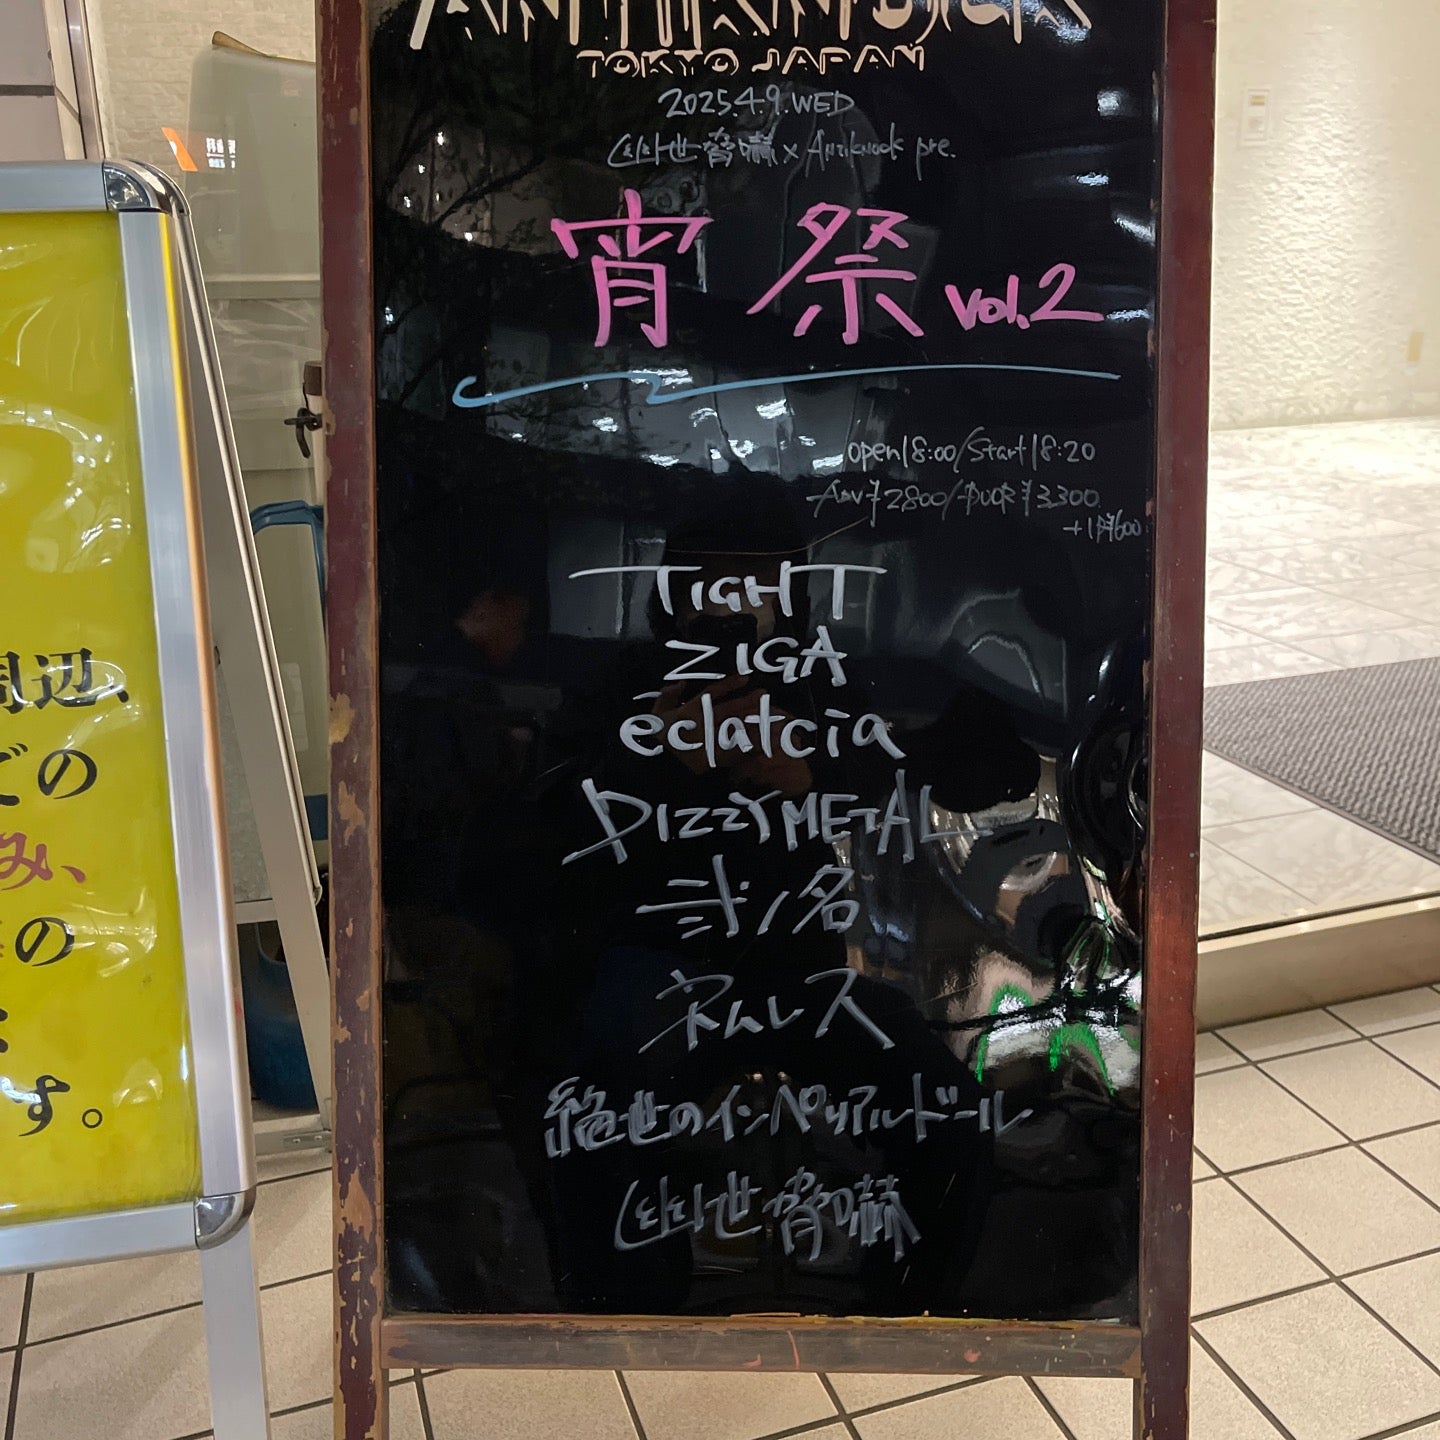 ANTIKNOCK
TOKYO JAPAN
2025.4.9.WED
幽世脅嚇×Antiknock pre.
宵祭 vol.2
open18:00/Start18:20
Adv¥2800/DOOR¥3,300
+1D¥600
TIGHT
ZIGA
éclatcia
DIZZYMETAL
弐ノ名
ネムレス
絶世のインペリアルドール
幽世脅嚇
周辺、
どの
み、
の
す。